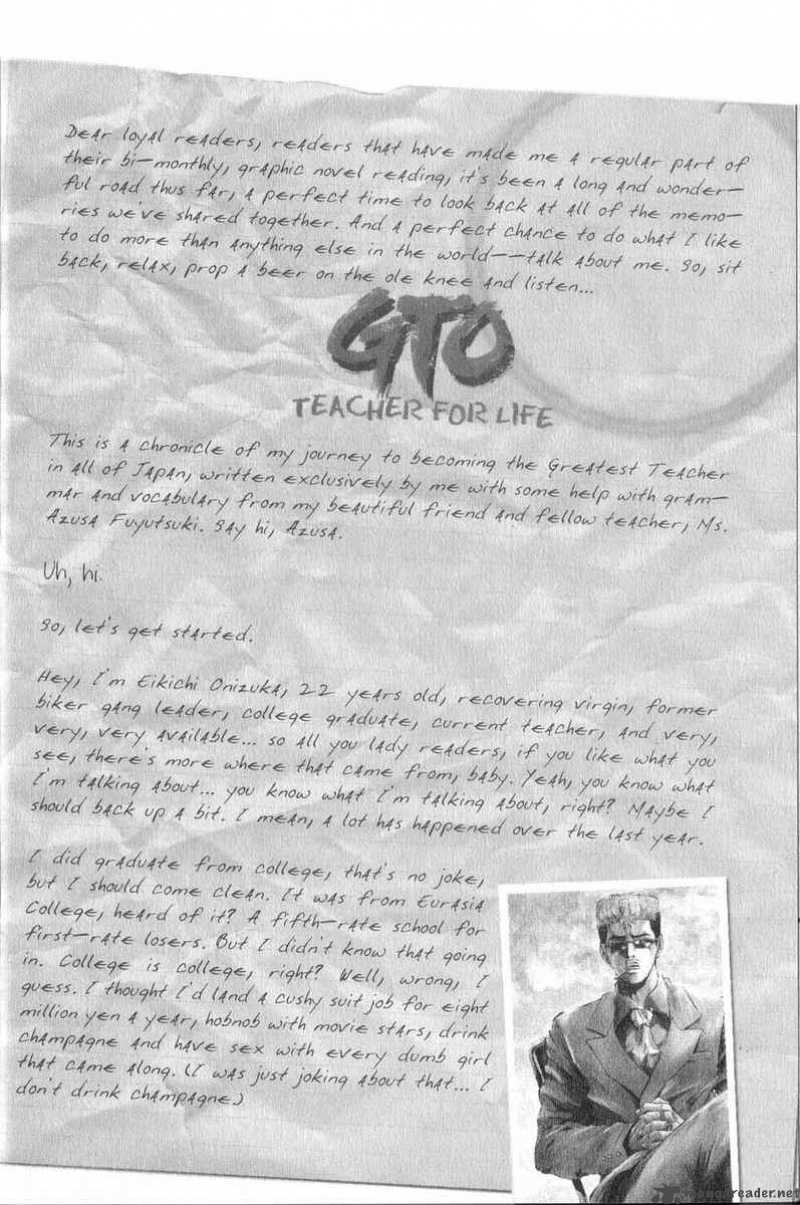 Dear loyal readers, readers that have made me a regular part of
their bi-monthly, graphic novel reading, it's been a long and wonder-
ful road thus far, a perfect time to look back at all of the memo-
ries we've shared together. And a perfect chance to do what I like
to do more than anything else in the world--talk about me. So, sit
back, relax, prop a beer on the ole knee and listen...
GTO
TEACHER FOR LIFE
This is a chronicle of my journey to becoming the Greatest Teacher
in all of Japan, written exclusively by me with some help with gram-
mar and vocabulary from my beautiful friend and fellow teacher, Ms.
Azusa Fuyutsuki. Say hi, Azusa.
Uh, hi.
So, let's get started.
Hey, I'm Eikichi Onizuka, 22 years old, recovering virgin, former
biker gang leader, college graduate, current teacher, and very,
very, very available... so all you lady readers, if you like what you
see, there's more where that came from, baby. Yeah, you know what
I'm talking about... you know what I'm talking about, right? Maybe I
should back up a bit. I mean, a lot has happened over the last year.
I did graduate from college, that's no joke,
but I should come clean. It was from Eurasia
College, heard of it? A fifth-rate school for
first-rate losers. But I didn't know that going
in. College is college, right? Well, wrong, I
guess. I thought I'd land a cushy suit job for eight
million yen a year, hobnob with movie stars, drink
champagne and have sex with every dumb girl
that came along. (I was just joking about that... I
don't drink champagne.)
reader.net